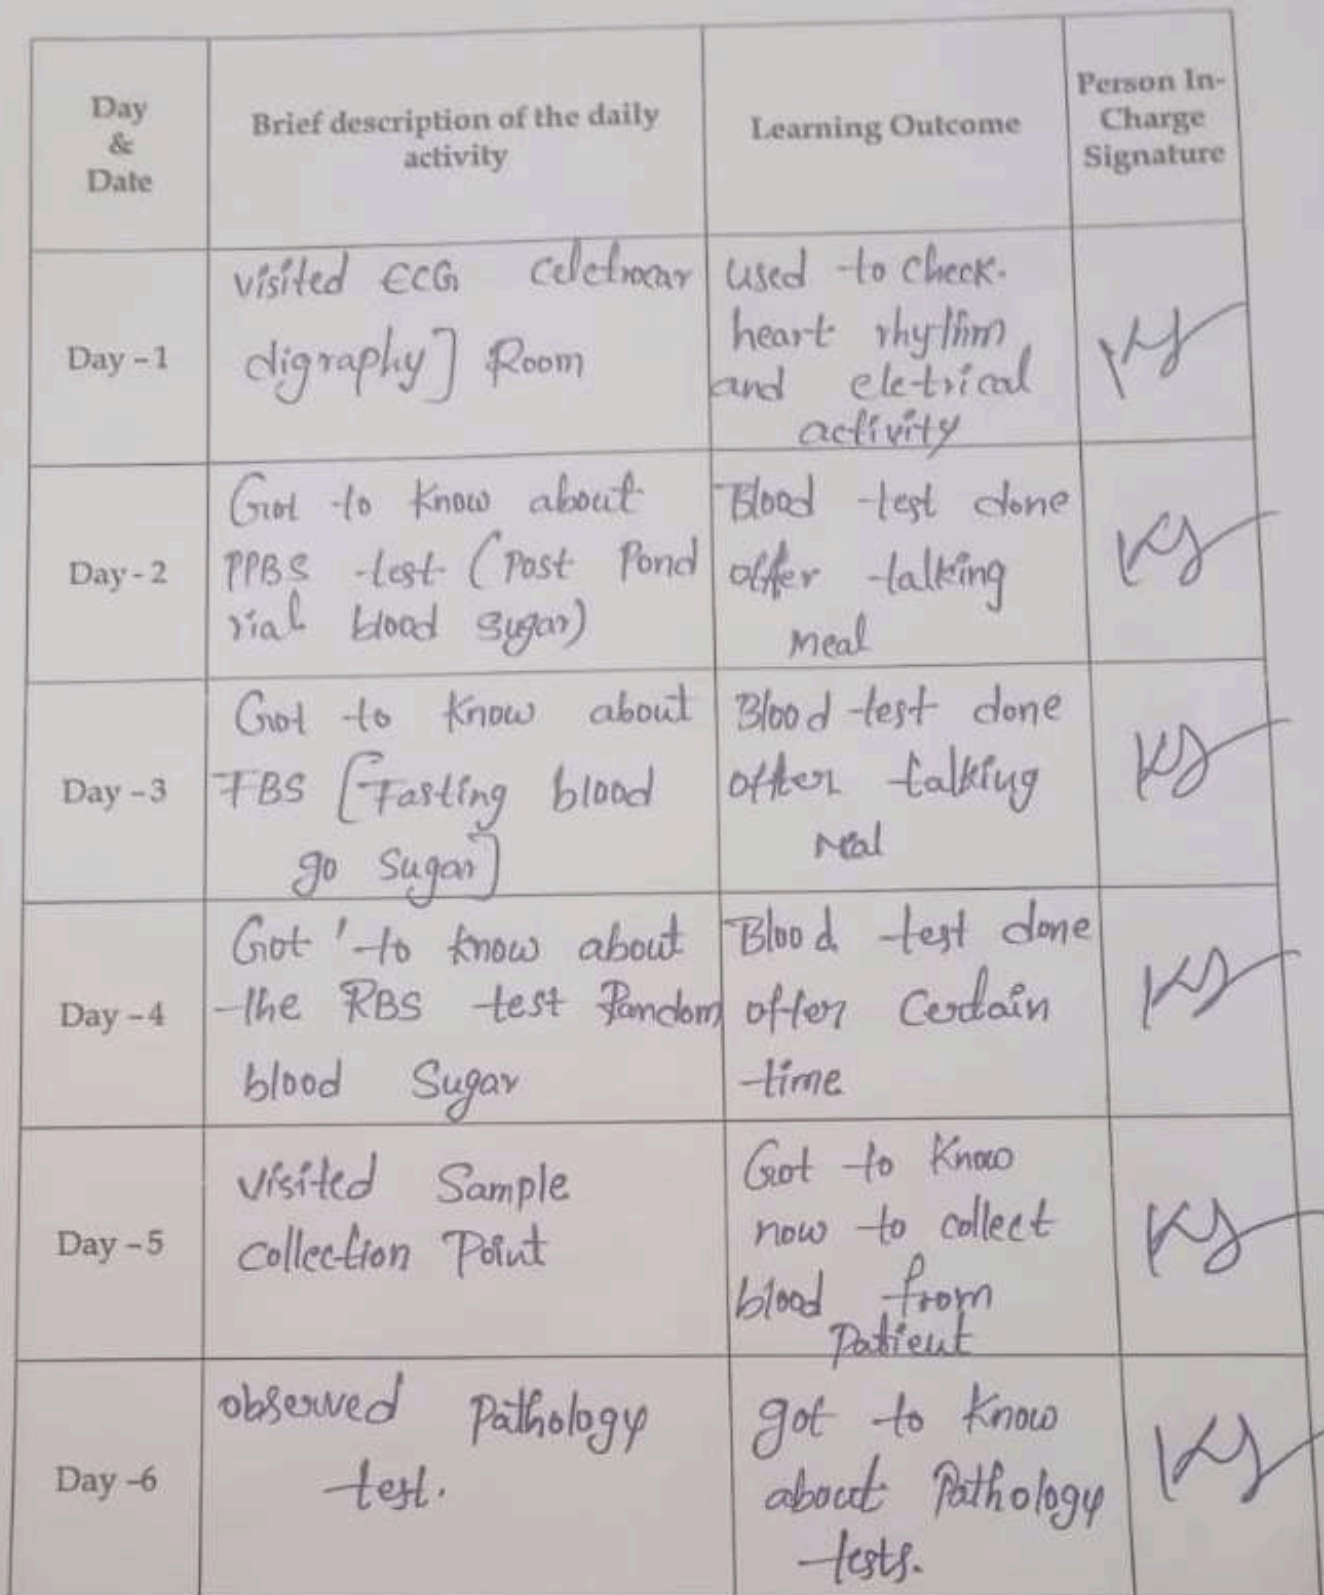 Day
&
Date
Brief description of the daily
activity
Learning Outcome
Person In-
Charge
Signature
Day -1
visited ECG Celetrocar
digraphy] Room
used to check.
heart rhythm
and eletrical
activity
Day - 2
Got to know about
PPBS test (Post Pond
rial blood sugar)
Blood test done
offer talking
meal
Day -3
Got to know about
FBS [Fasting blood
go Sugar]
Blood test done
ofter talking
meal
Day -4
Got to know about
the RBS test Random
blood Sugar
Blood test done
ofter Certain
time
Day -5
visited Sample
collection Point
Got to Know
now to collect
blood from
Patient
Day -6
observed Pathology
test.
got to know
about Pathology
tests.